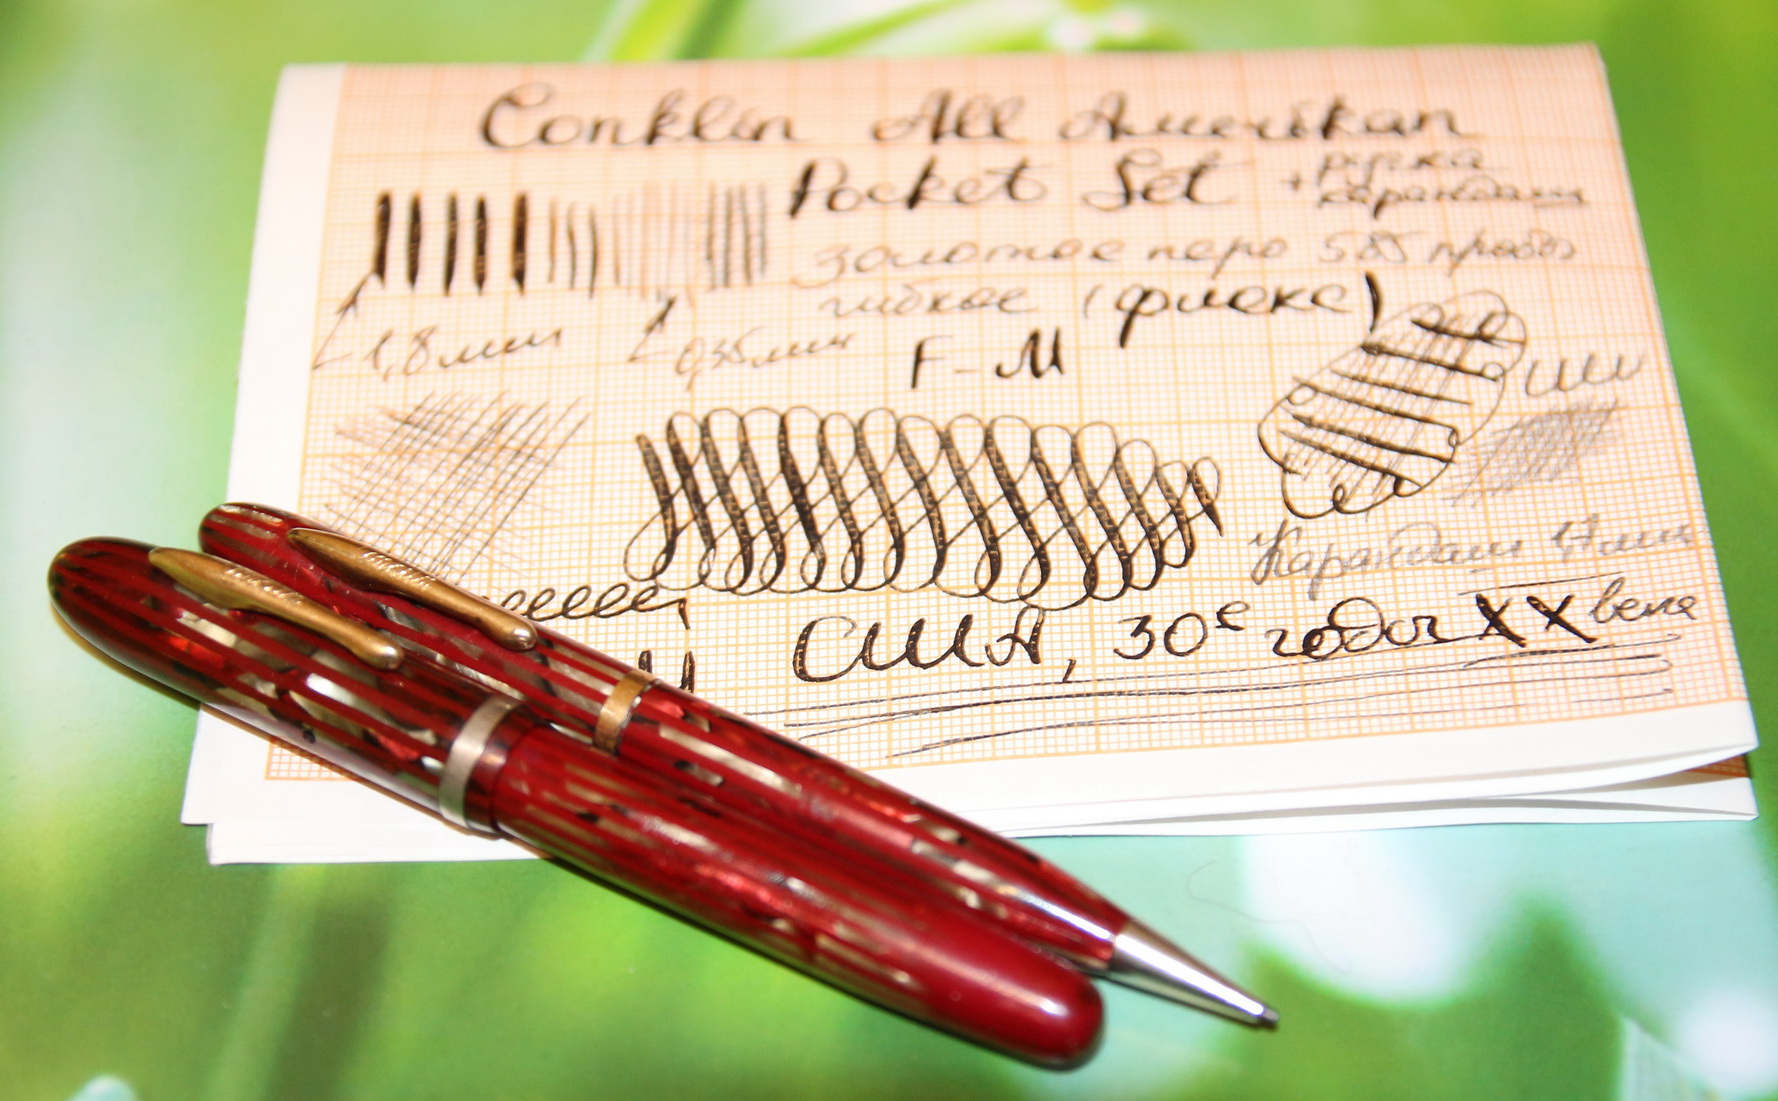 Conklin All Amerikan
Pocket Set + ручка
карандаш
золотое перо 585 пробы
гибкое (флекс)
1,8 мм
0,35 мм
F-M
Карандаш 1,1 мм
США, 30е годы XX века